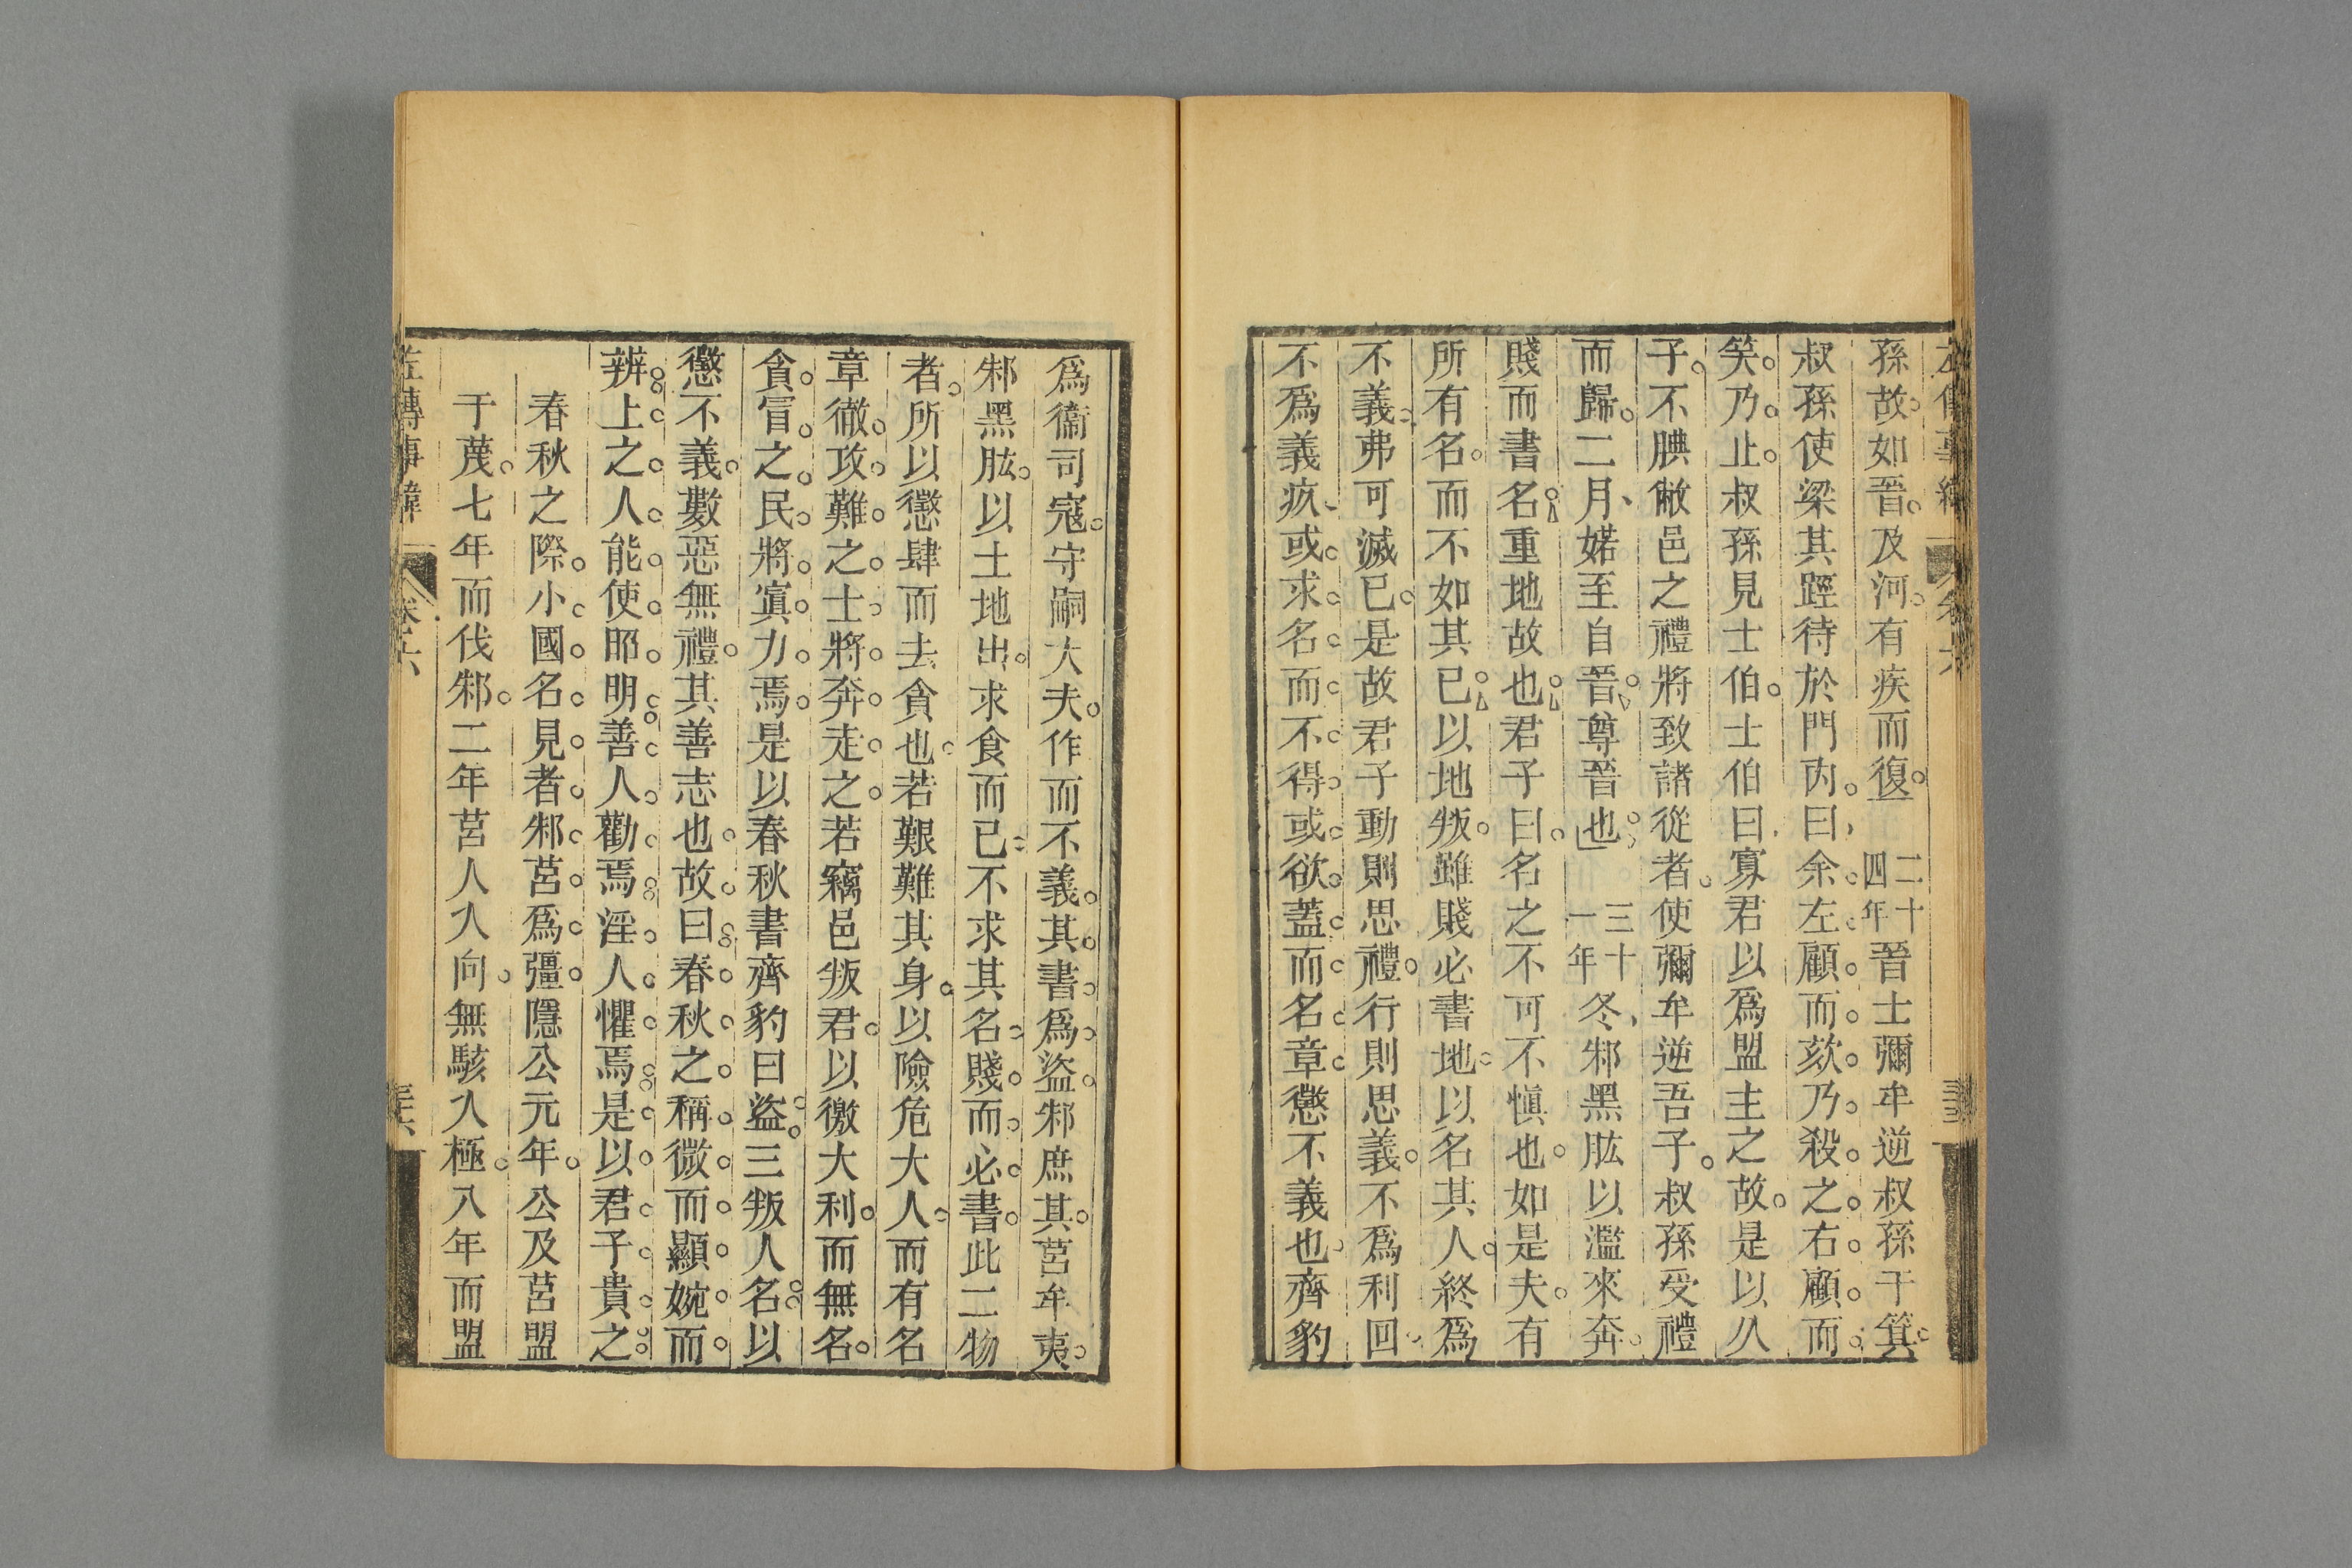 孫故如晉及河有疾而復二十四年晉士彌牟逆叔孫于箕
叔孫使梁其踁待於門內曰余左顧而欬乃殺之右顧而
笑乃止叔孫見士伯士伯曰寡君以爲盟主之故是以久
子不腆敝邑之禮將致諸從者使彌牟逆吾子叔孫受禮
而歸二月婼至自晉尊晉也三十一年冬邾黑肱以濫來奔
賤而書名重地故也君子曰名之不可不慎也如是夫有
所有名而不如其已以地叛雖賤必書地以名其人終爲
不義弗可滅已是故君子動則思禮行則思義不爲利回
不爲義疚或求名而不得或欲蓋而名章懲不義也齊豹
爲衞司寇守嗣大夫作而不義其書爲盜邾庶其莒牟夷
邾黑肱以土地出求食而已不求其名賤而必書此二物
者所以懲肆而去貪也若艱難其身以險危大人而有名
章徹攻難之士將奔走之若竊邑叛君以徼大利而無名
貪冒之民將寘力焉是以春秋書齊豹曰盜三叛人名以
懲不義數惡無禮其善志也故曰春秋之稱微而顯婉而
辨上之人能使昭明善人勸焉淫人懼焉是以君子貴之
春秋之際小國名見者邾莒爲彊隱公元年公及莒盟
于蔑七年而伐邾二年莒人入向無駭入極八年而盟
左傳事緯 卷六 三六